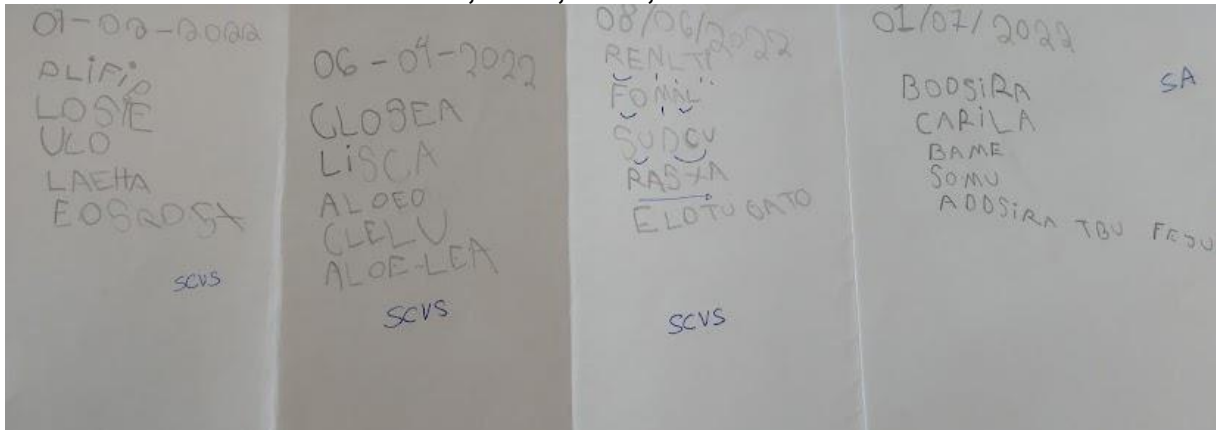 01-03-2022
ALIFIO
LOSIE
ULO
LAEHA
EOSROSX
SCVS
06-04-2022
CLOBEA
LISCA
ALOEO
CLELU
ALOE-LEA
SCVS
08/06/2022
RENLTI
FOMAL
SUDCU
RASXA
ELOTU GATO
SCVS
01/07/2022
SA
BODSIRA
CARILA
BAME
SOMU
ADDSIRA TBU FEJU